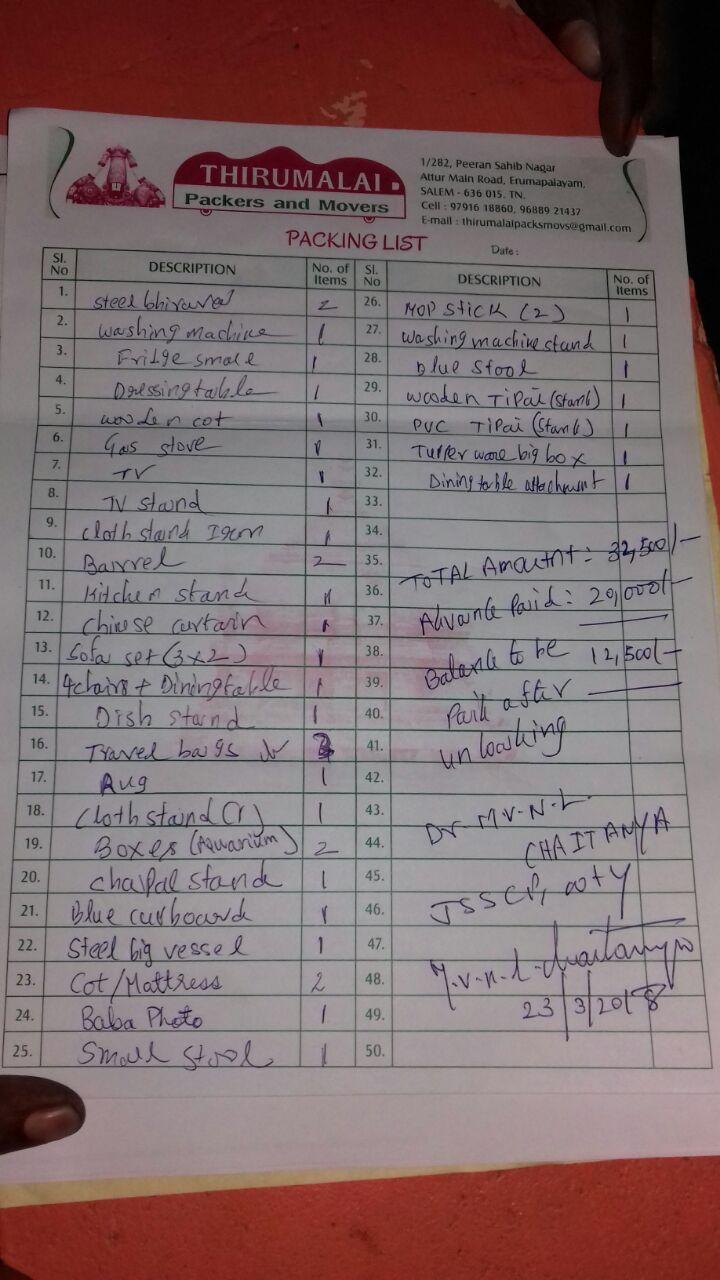 THIRUMALAI
Packers and Movers
1/282, Peeran Sahib Nagar
Attur Main Road, Erumapalayam,
SALEM - 636 015. TN.
Cell : 97916 18860, 96889 21437
E-mail : thirumalaipacksmovs@gmail.com
PACKING LIST
Date :
Sl. No DESCRIPTION No. of Items Sl. No DESCRIPTION No. of Items
1. steel 2
2. washing machine 1
3. Fridge small 1
4. Dressing table 1
5. wooden cot 1
6. Gas stove 1
7. TV 1
8. TV stand 1
9. cloth stand 1
10. Barrel 2
11. Kitchen stand 1
12. curtain 1
13. Sofa set (3x2) 1
14. 4chairs + Dining table 1
15. Dish stand 1
16. Travel bags
17. 1
18. Cloth stand (1) 1
19. Boxes (Aquarium) 2
20. stand 1
21. Blue 1
22. Steel big vessel 1
23. Cot/Mattress 2
24. Baba Photo 1
25. Small stool 1
26. MOP STICK (2) 1
27. washing machine stand 1
28. Blue stool 1
29. wooden Tipai 1
30. PVC Tipai 1
31. Tupper ware big box 1
32. Dining table attachment 1
33.
34.
35. TOTAL Amount: 32,500/-
36.
37. Advance Paid: 20,000/-
38. Balance to be 12,500/-
39. Paid after
40.
41. unloading
42.
43. Dr. M.V.N.L.
44. CHAITANYA
45.
46. JSSCP, ooty
47.
48. M.v.n.l. Chaitanya
49. 23/3/2018
50.